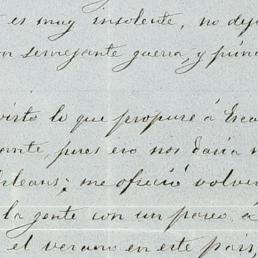 es muy insolente, no dej
on semejante guerra, y prin
visto lo que propuse á Esca
ante, pues eso nos daria
Orleans; me ofreció volver
la gente con un paseo á
el verano en este pais,